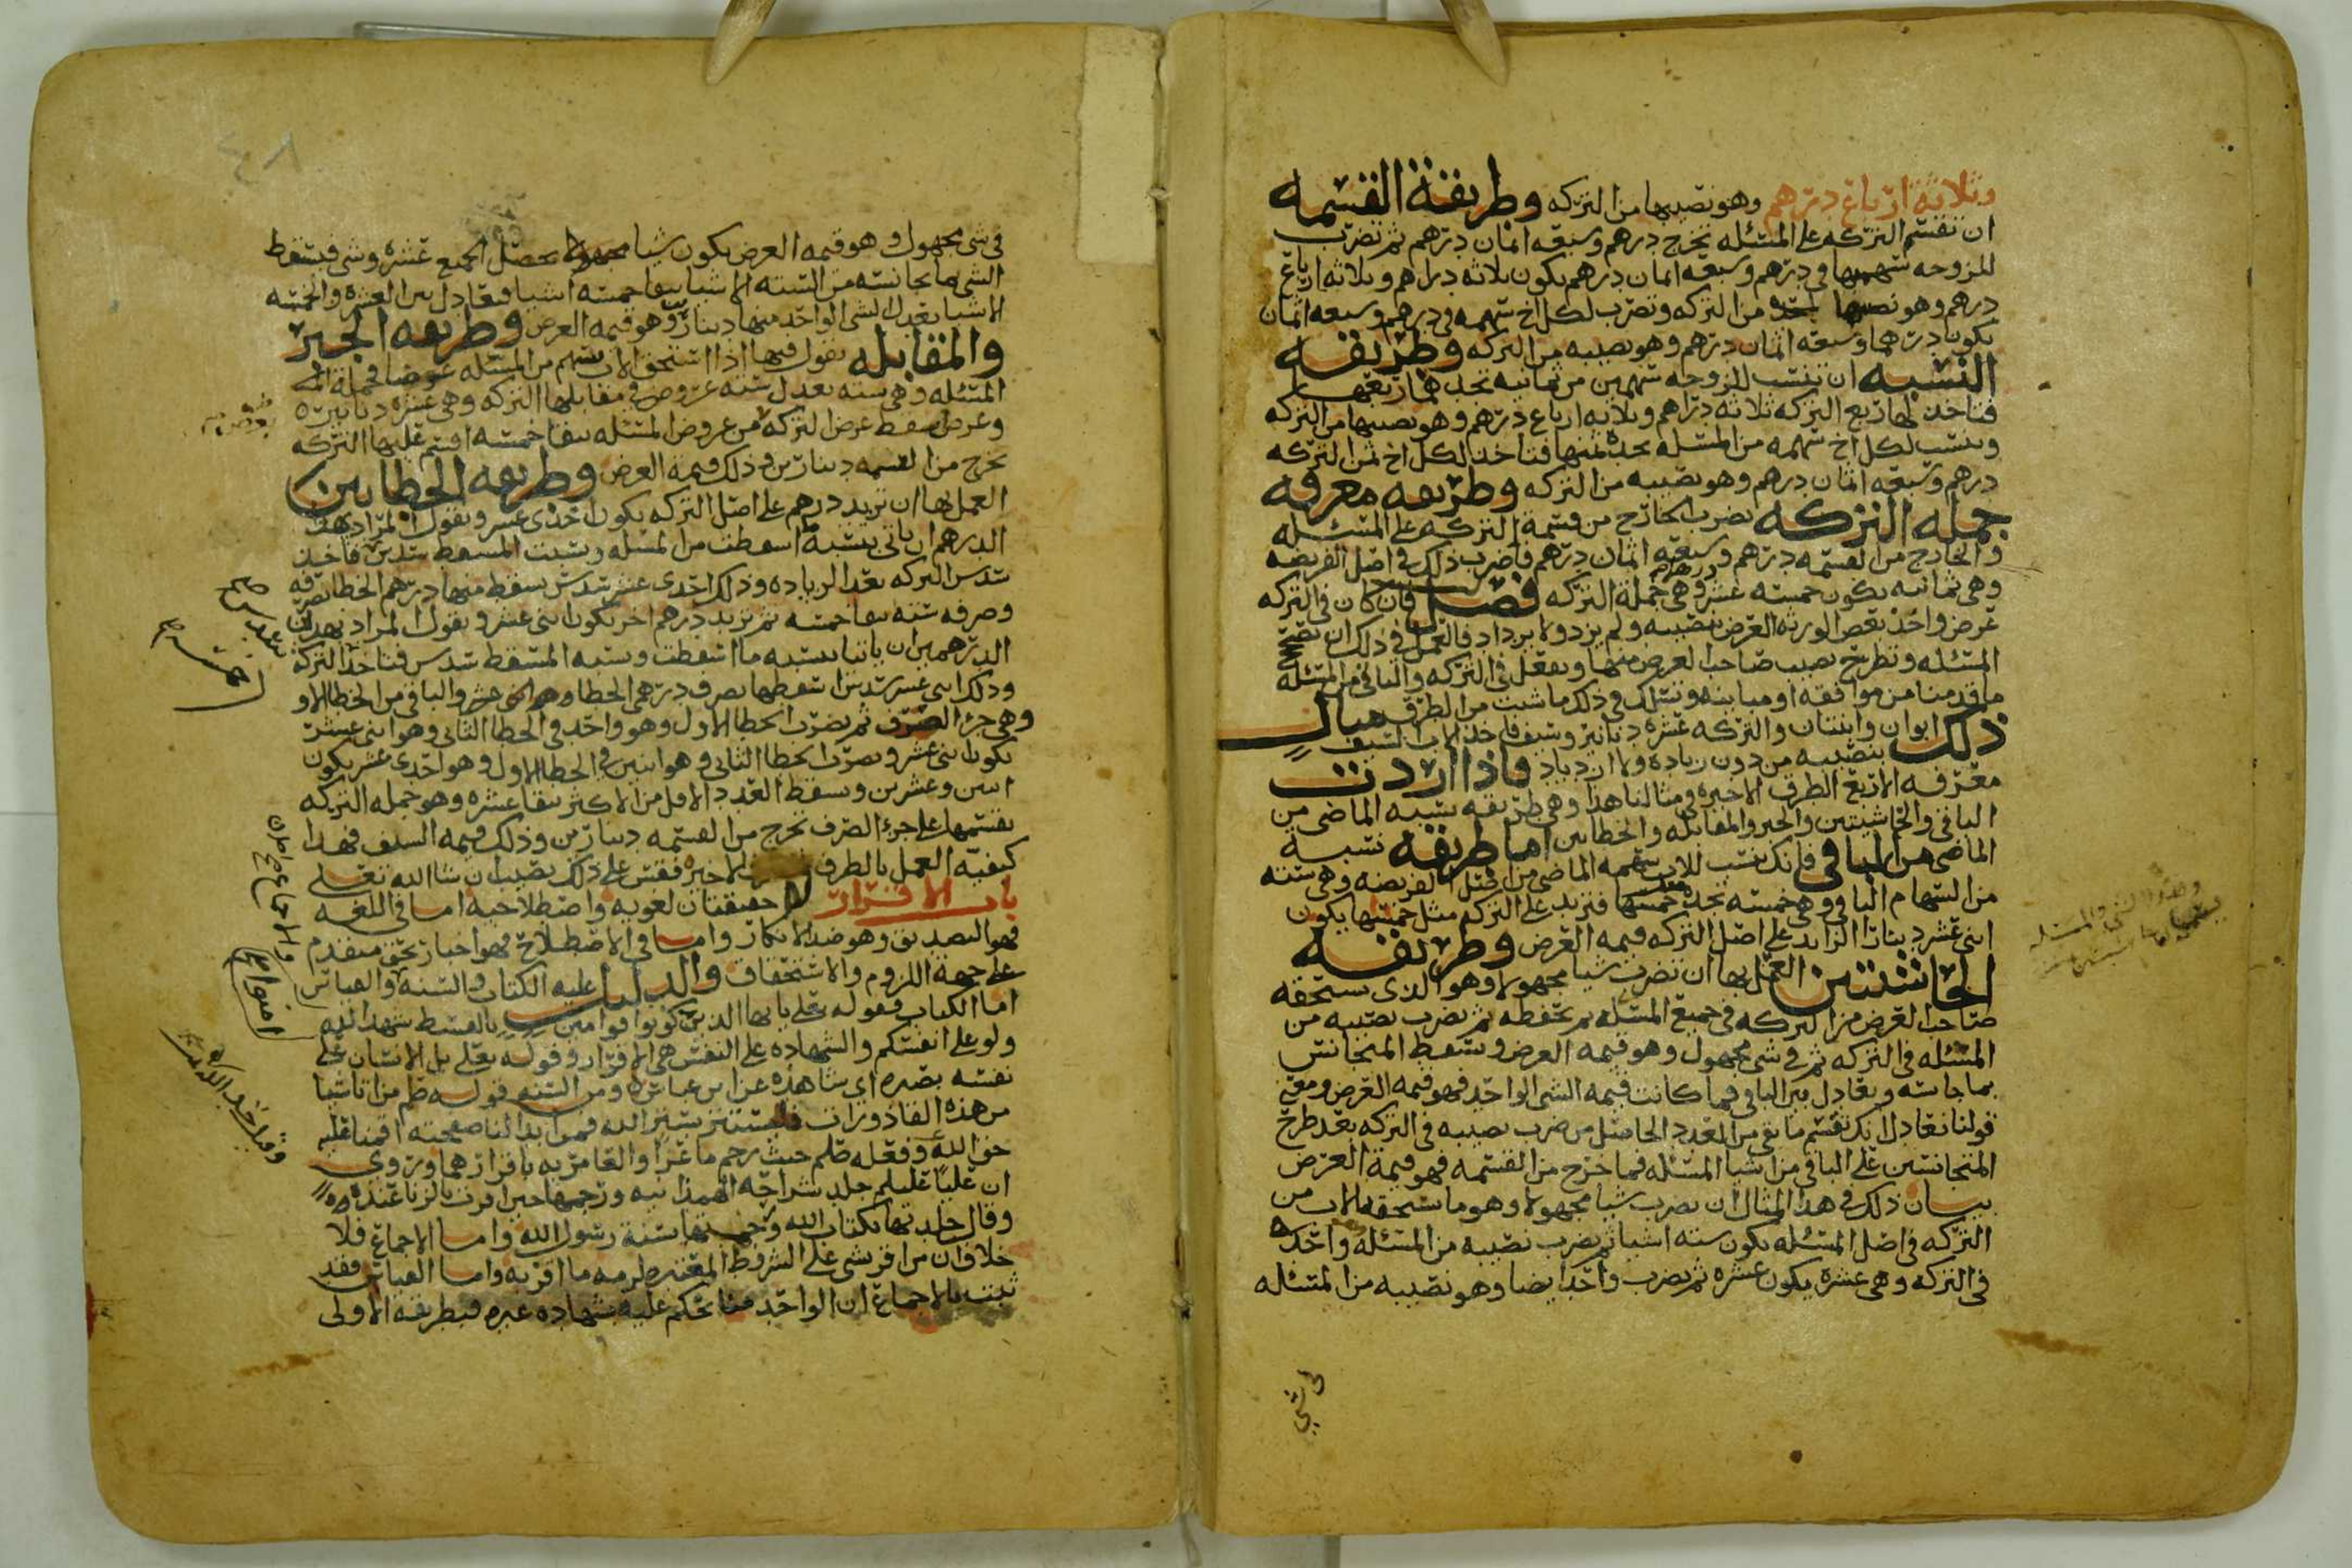 وثلاثة ارباع درهم وهو نصيبها من التركه وطريقة القسمه
ان تقسم التركه على المسئله تخرج درهم وسبعه اثمان درهم ثم تضرب
للزوجه سهمها في درهم وسبعه اثمان درهم يكون ثلاثه دراهم وثلاثه ارباع
درهم وهو نصيبها من التركه وتضرب لكل اخ سهمه في درهم وسبعه اثمان
يكون درهما وسبعه اثمان درهم وهو نصيبه من التركه وطريقه
النسبه ان تنسب للزوجه سهمين من ثمانيه تجدهما ربعها
فتاخذ لها ربع التركه ثلاثه دراهم وثلاثه ارباع درهم وهو نصيبها من التركه
وتنسب لكل اخ سهمه من المسئله تجده ثمنها فتاخذ لكل اخ ثمن التركه
درهم وسبعه اثمان درهم وهو نصيبه من التركه وطريقه معرفه
جملة التركه تضرب الخارج من قسمة التركه على المسئله
والخارج من القسمه درهم وسبعه اثمان درهم فاضرب ذلك في اصل الفريضه
وهي ثمانيه يكون خمسه عشر درهم وهي جملة التركه فصل فان كان في التركه
عرض واخذ بعض الورثه العرض بنصيبه ولم يزد ولا يزداد فالعمل في ذلك ان تصحح
المسئله وتطرح نصيب صاحب العرض منها وتفعل في التركه والباقي من المسئله
ما قدمنا من موافقه او مباينه وتسلك في ذلك ما شيت من الطرق مثال
ذلك ابوان وابنتان والتركه عشره دنانير وسيف فاخذ الاب السيف
بنصيبه من دون زياده ولا ازدياد فاذا اردت
معرفه الاربع الطرق الاخيره في مثالنا هذا وهي طريقه نسبه الماضي من
الباقي والحاشيتين والجبر والمقابله والخطاين اما طريقه نسبة
الماضي من الباقي فانك تنسب للاب سهمه الماضي من اصل الفريضه وهي سته
من السهام الباقي وهي خمسه تجده خمسها فتزيد على التركه مثل خمسها يكون
اثنى عشر دينارا الزايد على اصل التركه قيمه العرض وطريقه
الحاشيتين العمل بها ان تضرب شيا مجهولا وهو الذي يستحقه
صاحب العرض من التركه في جميع المسئله ثم تحفظه ثم تضرب نصيبه من
المسئله في التركه ثم في شي مجهول وهو قيمه العرض وتسقط المتجانس
بما جانسه وتعادل بين الباقي فما كانت قيمه الشي الواحد فهو قيمه العرض ومعنى
قولنا تعادل انك تقسم ما بقي من العدد الحاصل من ضرب نصيبه في التركه بعد طرح
المتجانسين على الباقي من اشيا المسئله فما خرج من القسمه فهو قيمة العرض
بيان ذلك في هذا المثال ان تضرب شيا مجهولا وهو ما يستحقه الاب من
التركه في اصل المسئله يكون سته اشيا ثم تضرب نصيبه من المسئله واحد
في التركه وهي عشره يكون عشره ثم تضرب واحد ايضا وهو نصيبه من المسئله
في شي
في شي مجهول وهو قيمه العرض يكون شيا مجهولا تحصل الجميع عشره وشي فيسقط
الشي ما يجانسه من السته الاشيا يبقا خمسه اشيا فتعادل بين العشره والخمسه
الاشيا يعدل الشي الواحد منها دينارين وهو قيمه العرض وطريقه الجبر
والمقابله تقول فيها اذا استحق الاب بسهم من المسئله عرضا فجملة
المسئله وهي سته تعدل سته عروض في مقابلها التركه وهي عشره دنانير
وعرض تسقط عرض التركه من عروض المسئله تبقا خمسه اقسم عليها التركه
تخرج من القسمه دينارين وذلك قيمة العرض وطريقه الخطاين
العمل بها ان تزيد درهم على اصل التركه يكون احدى عشر وتقول المراد بهذا
الدرهم ان ياتي بنسبة ما اسقطت من المسئله ونسبت المسقط سدس فتاخذ
سدس التركه بعد الزياده وذلك احدى عشر سدس تسقط منها درهم الخطا تصرفه
وصرفه سته يبقا خمسه ثم تزيد درهم اخر يكون اثنى عشر وتقول المراد بهذين
الدرهمين ان ياتيا بنسبه ما اسقطت ونسبه المسقط سدس فتاخذ التركه
وذلك اثنى عشر سدس اسقطها تصرف درهمي الخطا والباقي من الخطا الاو
وهي جزء الصرف ثم تضرب الخطا الاول وهو واحد في الخطا الثاني وهو اثنى عشر
يكون اثنى عشر وتضرب الخطا الثاني وهو اثنين في الخطا الاول وهو احدى عشر يكون
اثنين وعشرين وتسقط العدد الاقل من الاكثر تبقا عشره وهو جمله التركه
تقسمها على جزء الصرف تخرج من القسمه دينارين وذلك قيمه السيف فهذا
كيفيه العمل بالطرق الاخيره فقس على ذلك تصب ان شا الله تعلى
باب الاقرار له حقيقتان لغويه واصطلاحيه اما في اللغه
فهو التصديق وهو ضد الانكار واما في الاصطلاح فهو اخبار بحق متقدم
على جهة اللزوم والاستحقاق والدليل عليه الكتاب والسنه والقياس
اما الكتاب فقوله تعلى يا ايها الذين كونوا قوامين بالقسط شهدا لله
ولو على انفسكم والشهاده على النفس هي الاقرار وقوله تعلى بل الانسان على
نفسه بصيره اي شاهده عن ابن عباس ومن السنه قوله صلم من اتا شيا
من هذه القاذورات فليستتر بستر الله فمن ابدا لنا صفحته اقمنا عليه
حق الله وفعله صلم حيث رجم ماعزا والغامريه باقرارهما وروي
ان عليا عليلم جلد شراحه الهمدانيه ورجمها حين اقرت بالزنا عنده
وقال جلدتها بكتاب الله ورجمتها بسنة رسول الله واما الاجماع فلا
خلاف ان من اقر بشي على الشروط المعتبره لزمه ما اقر به واما القياس فقد
ثبت بالاجماع ان الواحد منا تحكم عليه بشهاده غيره فبطريقه الاولى